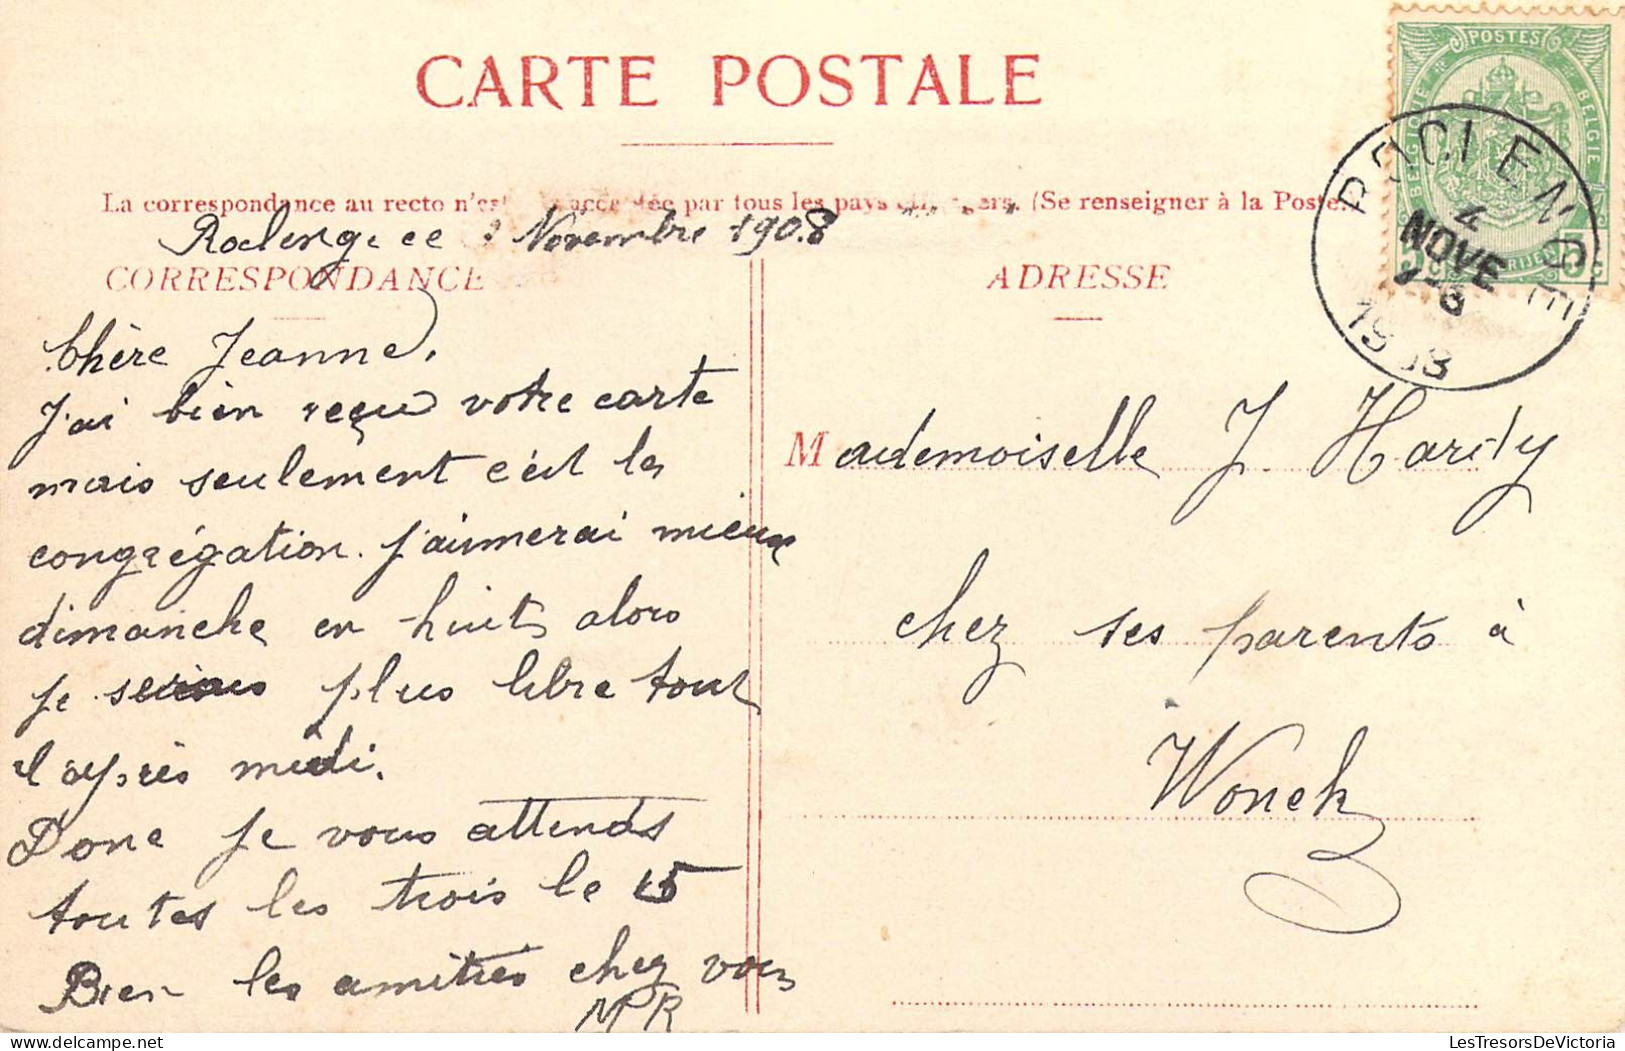 CARTE POSTALE
POSTES
BELGIQUE BELGIE
La correspondance au recto n'est acceptée par tous les pays étrangers. (Se renseigner à la Poste.)
4
NOVE
1908
Roclenge ce Novembre 1908
CORRESPONDANCE
ADRESSE
Chère Jeanne,
J'ai bien reçu votre carte
mais seulement c'est la
congrégation. J'aimerai mieux
dimanche en huit alors
je serais plus libre tout
l'après midi.
Donc je vous attends
toutes les trois le 15
Bien les amitiés chez vous
M R
Mademoiselle J. Hardy
chez ses parents à
Wonck
LesTresorsDeVictoria